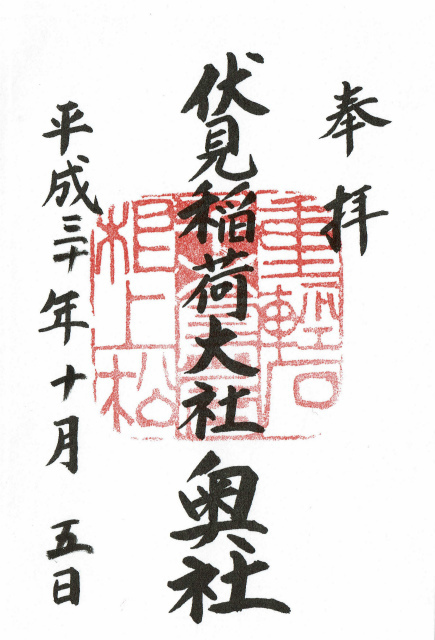 奉拝
伏見稲荷大社奥社
平成三十年十月五日